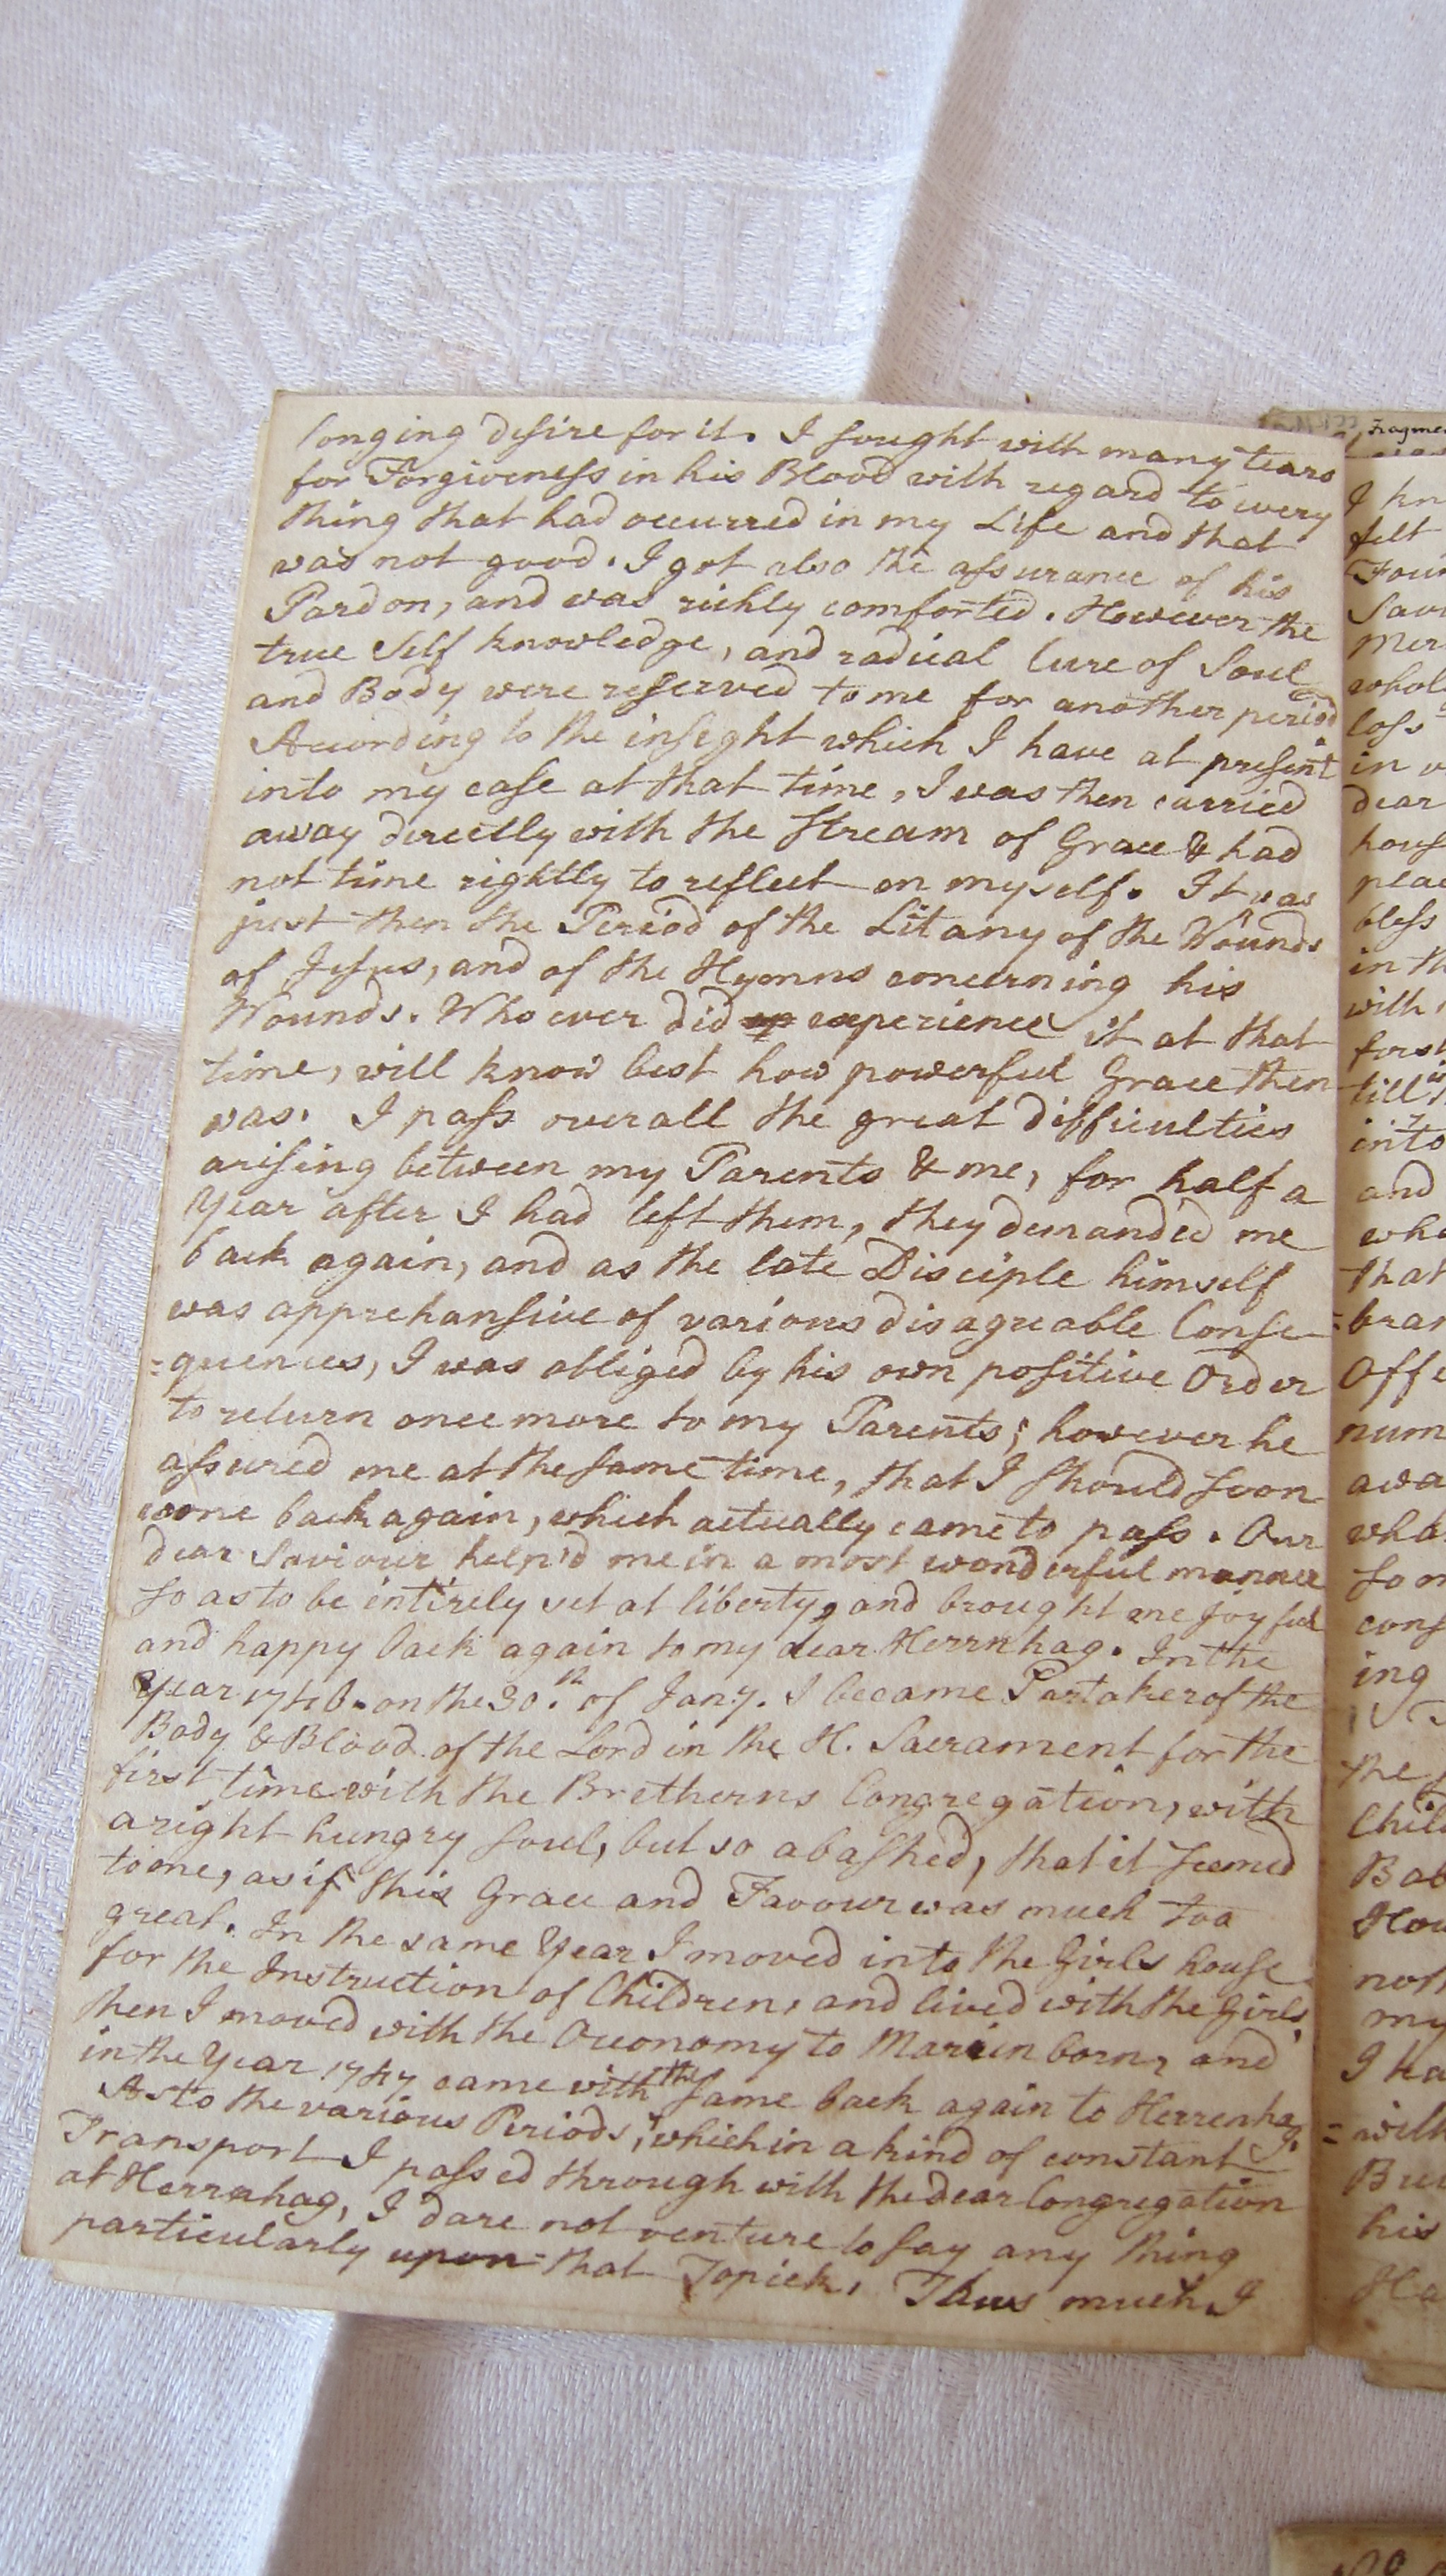 longing desire for it. I sought with many tears
for Forgiveness in his Blood with regard to every
thing that had occurred in my Life and that
was not good. I got also the assurance of his
Pardon, and was richly comforted. However the
true self knowledge, and radical Cure of Soul
and Body were reserved to me for another period.
According to the insight which I have at present
into my case at that time, I was then carried
away directly with the Stream of Grace & had
not time rightly to reflect on myself. It was
just then the Period of the Litany of the Wounds
of Jesus, and of the Hymns concerning his
Wounds. Who ever did experience it at that
time, will know best how powerful Grace then
was. I pass over all the great difficulties
arising between my Parents & me, for half a
Year after I had left them, they demanded me
back again, and as the late Disciple himself
was apprehansive of various disagreable Conse-
=quences, I was obliged by his own positive Order
to return once more to my Parents; however he
assured me at the same time, that I should soon
come back again, which actually came to pass. Our
dear Saviour help'd me in a most wonderful manner
so as to be intirely set at liberty, and brought me joyful
and happy back again to my dear Herrnhag. In the
Year 1746. on the 30.th of Jany. I became Partaker of the
Body & Blood of the Lord in the H. Sacrament for the
first time with the Bretherns Congregation, with
a right hungry soul, but so abashed, that it seemed
to me, as if this Grace and Favour was much too
great. In the same Year I moved into the Girls house
for the Instruction of Children, and lived with the Girls,
then I moved with the Oeconomy to Marienborn, and
in the Year 1747 came with the same back again to Herrenhag.
As to the various Periods, which in a kind of constant
Transport I passed through with the dear Congregation
at Herrnhag, I dare not venture to say any thing
particularly upon that Topick. Thus much I
Fragme
I kn
felt
Foun
Savi
Mer
whol
loss
in
dear
hous
plac
bless
in th
with
first
till
into
and
whi
that
=brar
Offe
num
awa
wha
so m
cons
ing
the
Chil
Bab
How
not
my
I ha
=with
Bu
his
Ha